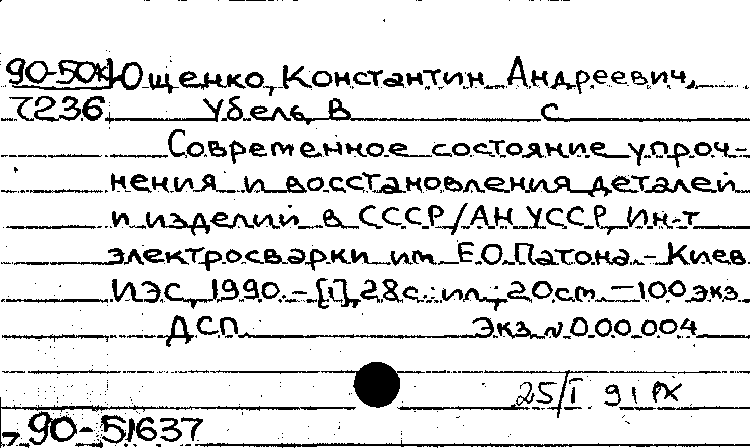 90-50к Ющенко, Константин Андреевич,
7236 Убель, В С
Современное состояние упроч-
нения и восстановления деталей
и изделий в СССР/АН УССР, Ин-т
электросварки им. Е.О.Патона.-Киев
ИЭС, 1990.-[1], 28с.:ил.; 20см.-100экз
ДСП. Экз.№000.004
25/I 91
90-51637